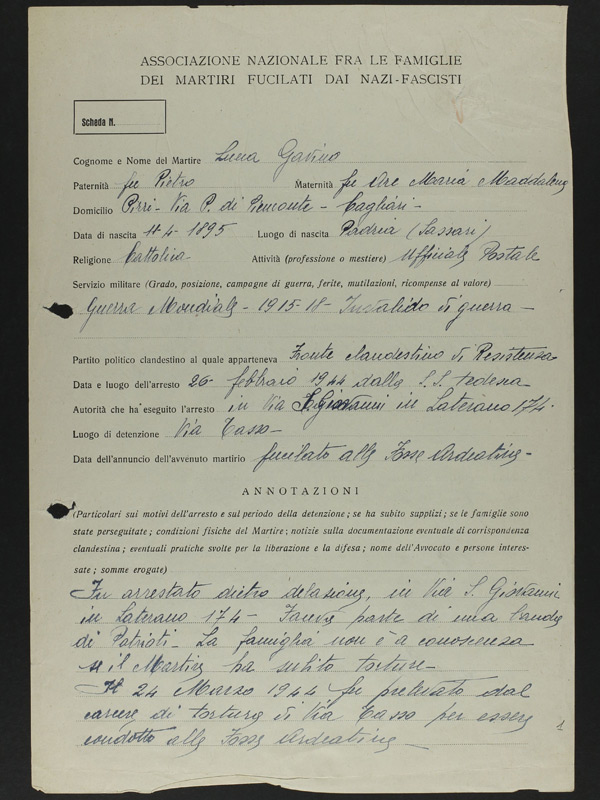 ASSOCIAZIONE NAZIONALE FRA LE FAMIGLIE
DEI MARTIRI FUCILATI DAI NAZI-FASCISTI
Scheda N.
Cognome e Nome del Martire Luna Gavino
Paternità fu Pietro Maternità fu Are Maria Maddalena
Domicilio Pirri - Via P. di Piemonte - Cagliari -
Data di nascita 11-4-1895 Luogo di nascita Padria (Sassari)
Religione Cattolica Attività (professione o mestiere) Ufficiale Postale
Servizio militare (Grado, posizione, campagne di guerra, ferite, mutilazioni, ricompense al valore)
Guerra Mondiale - 1915-18 - Invalido di guerra -
Partito politico clandestino al quale apparteneva Fronte clandestino di Resistenza
Data e luogo dell'arresto 26- febbraio 1944 dalla S.S. tedesca
Autorità che ha eseguito l'arresto in Via S. Giovanni in Laterano 174-
Luogo di detenzione Via Tasso -
Data dell'annuncio dell'avvenuto martirio fucilato alle Fosse Ardeatine -
ANNOTAZIONI
(Particolari sui motivi dell'arresto e sul periodo della detenzione; se ha subito supplizi; se le famiglie sono
state perseguitate; condizioni fisiche del Martire; notizie sulla documentazione eventuale di corrispondenza
clandestina; eventuali pratiche svolte per la liberazione e la difesa; nome dell'Avvocato e persone interes-
sate; somme erogate)
Fu arrestato dietro delazione, in Via S. Giovanni
in Laterano 174 - Faceva parte di una banda
di Patrioti - La famiglia non è a conoscenza
se il Martire ha subito torture -
Il 24 Marzo 1944 fu prelevato dal
carcere di tortura di Via Tasso per essere
condotto alle Fosse Ardeatine -
1